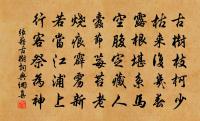 古樹枝柯少
枯來復幾春
露根堪系馬
空腹定藏人
蠹節莓苔老
燒痕霹靂新
若當江浦上
行客祭為神
張籍古樹詞典網集